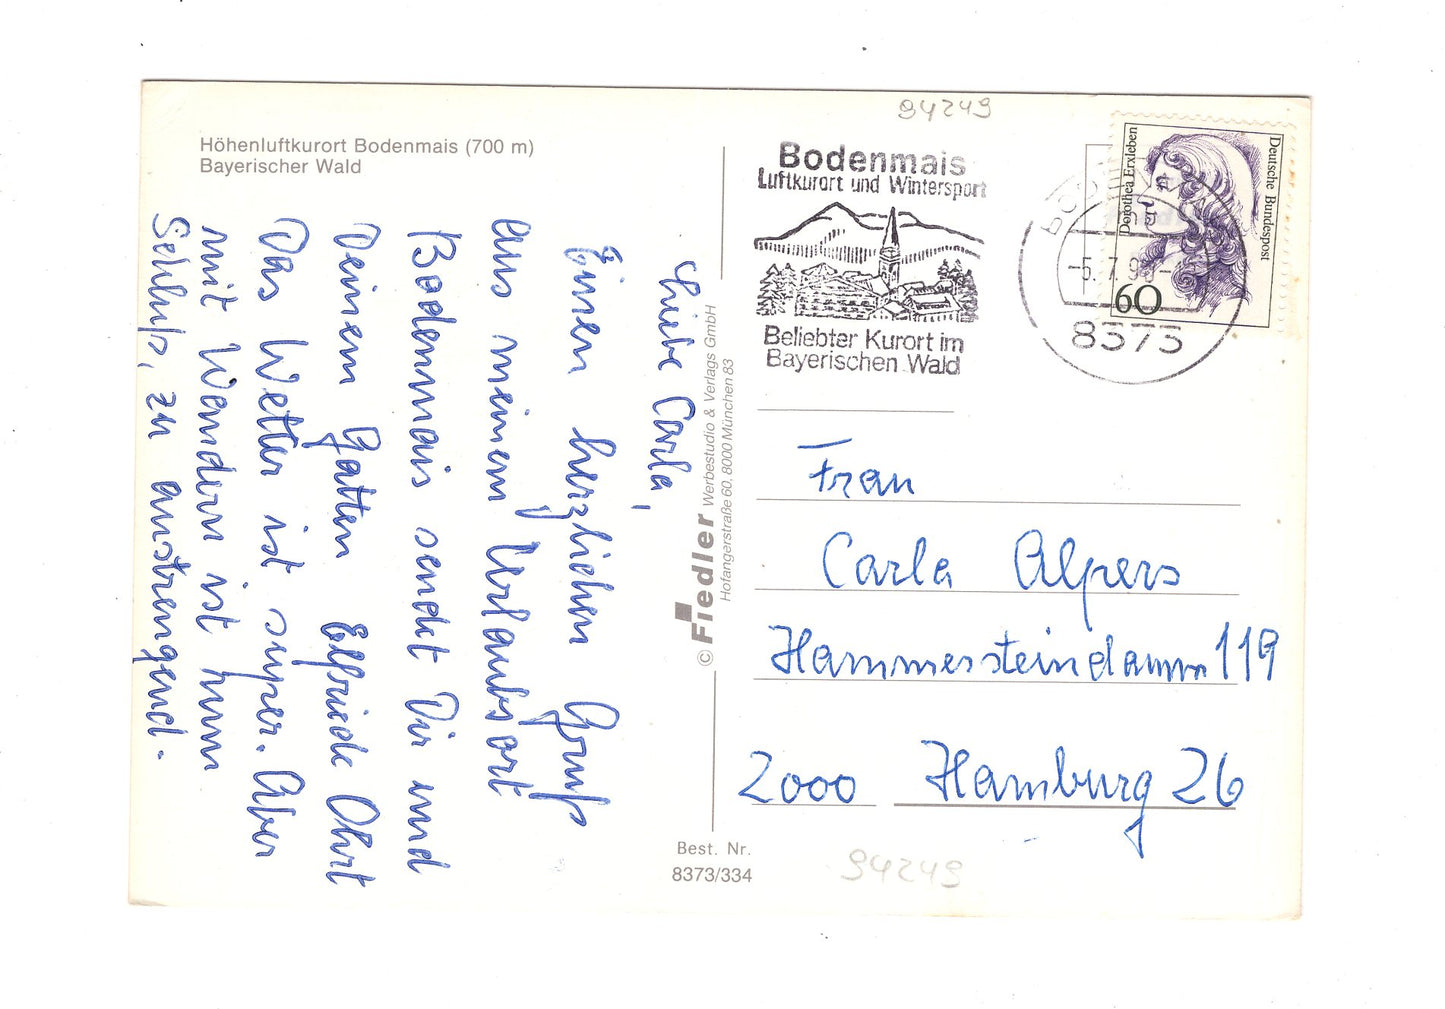 Höhenluftkurort Bodenmais (700 m)
Bayerischer Wald
Liebe Carla,
Einen herzlichen Gruß
aus meinem Urlaubsort
Bodenmais sendet Dir und
Deinem Gatten Elfriede Ohrt
Das Wetter ist super. Aber
mit Wandern ist nun
Schluß, zu anstrengend.
© Fiedler Werbestudio & Verlags GmbH
Hofangerstraße 60, 8000 München 83
Best. Nr.
8373/334
94249
Bodenmais
Luftkurort und Wintersport
Beliebter Kurort im
Bayerischen Wald
-5.7.9
8373
Dorothea Erxleben
Deutsche Bundespost
60
Frau
Carla Alpers
Hammersteindamm 119
2000 Hamburg 26
94249